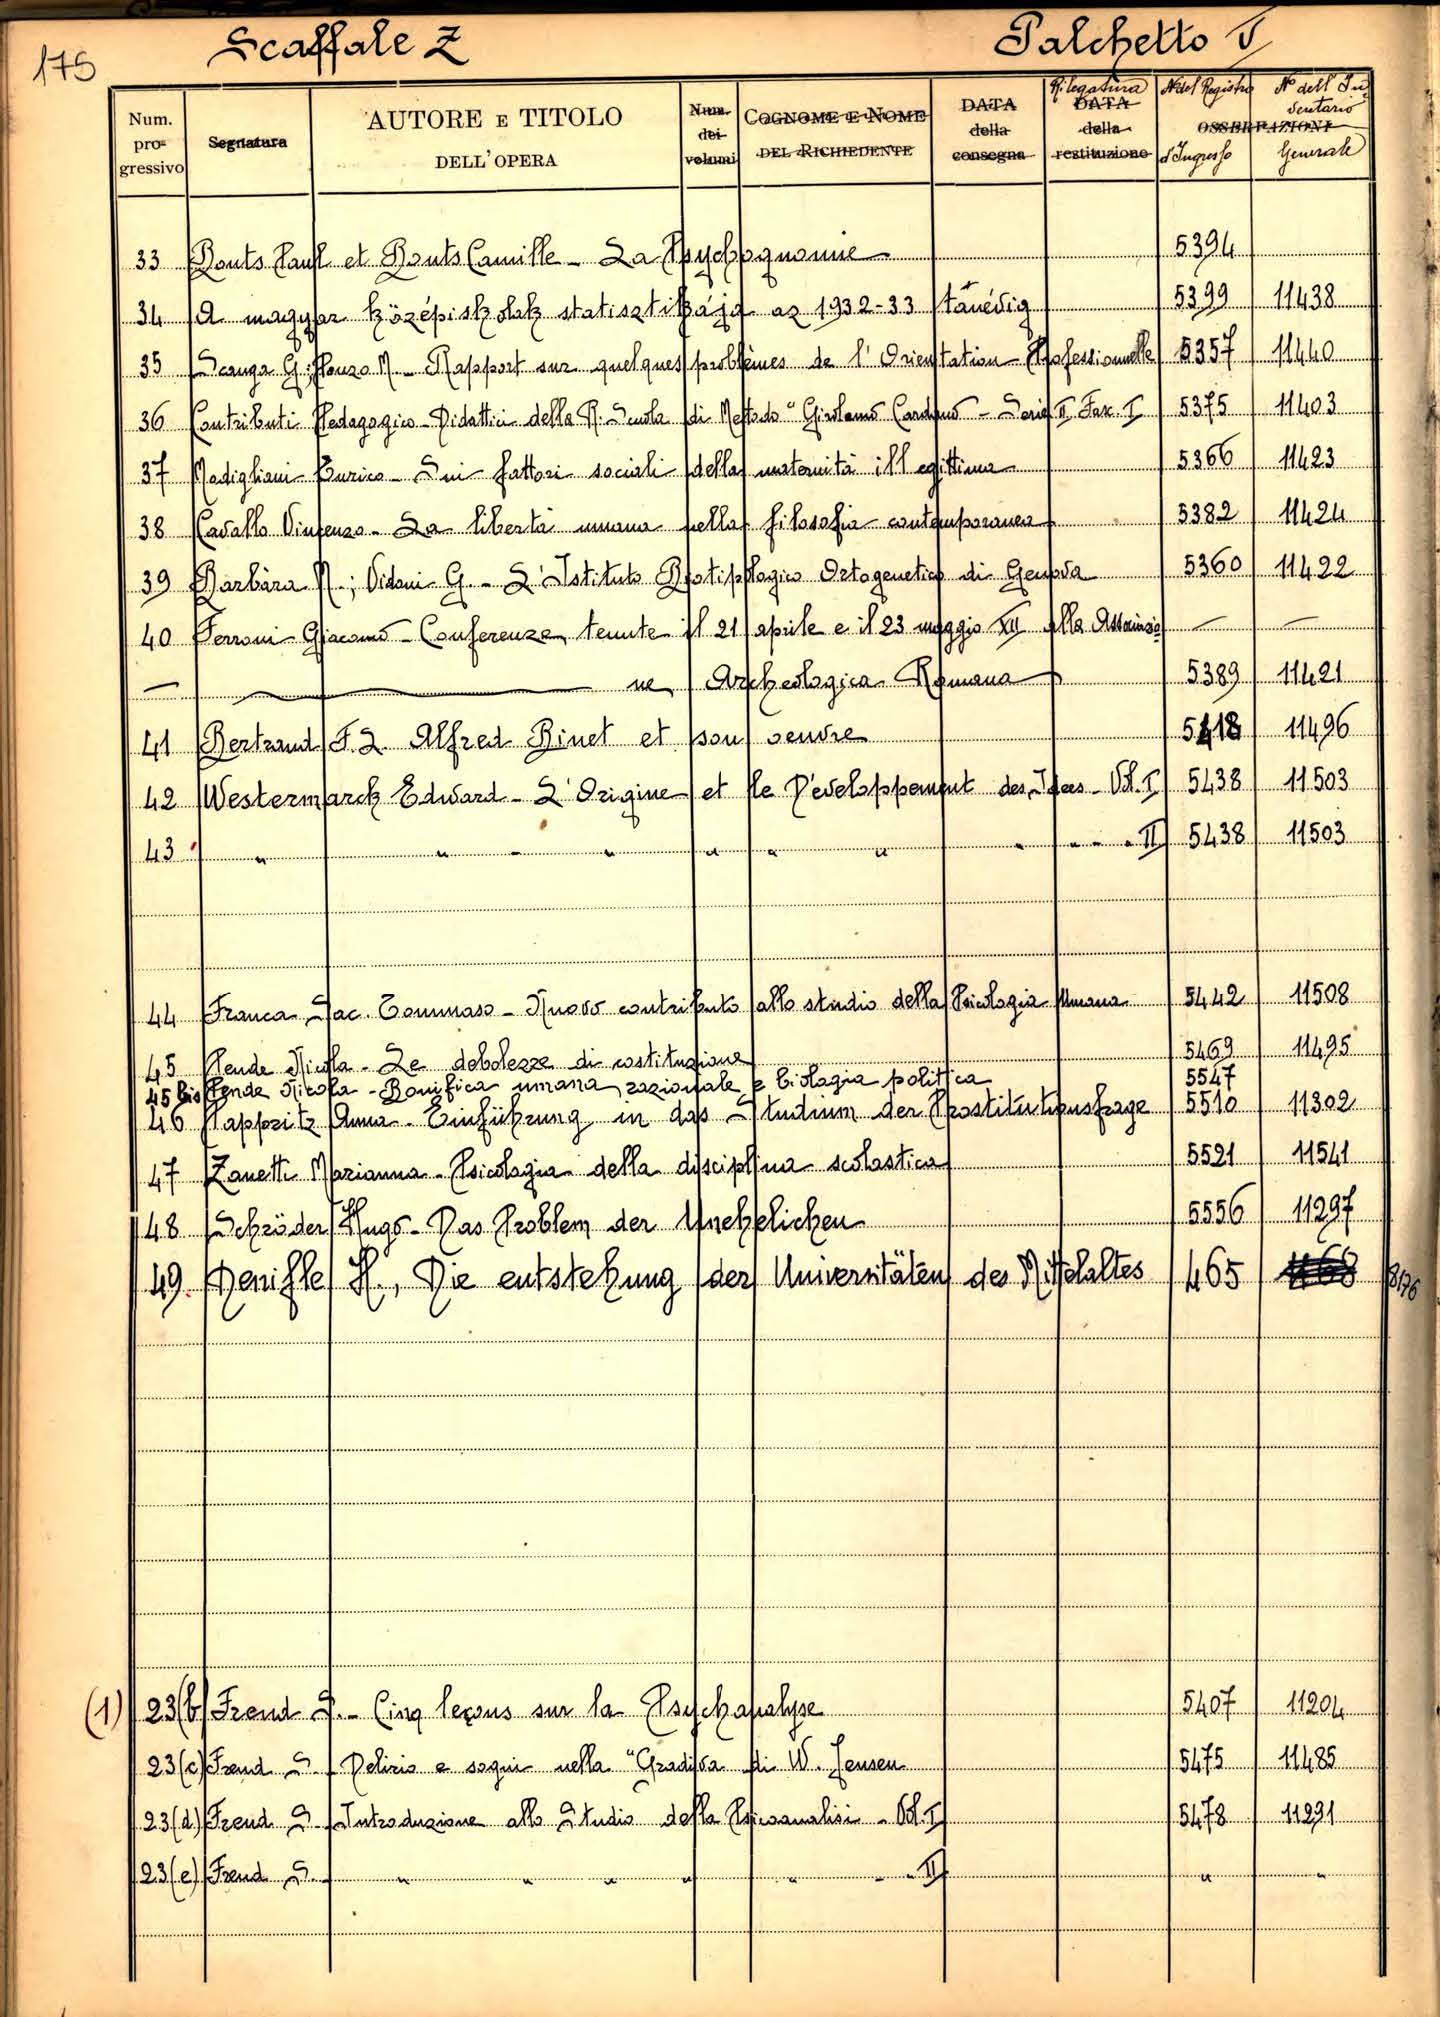 175 Scaffale Z Palchetto V
Num. progressivo Segnatura AUTORE E TITOLO DELL'OPERA Num. dei volumi COGNOME E NOME DEL RICHIEDENTE DATA della consegna Rilegatura DATA della restituzione OSSERVAZIONI N° del Registro d'Ingresso N° dell'Inventario Generale
33 Bouts Paul et Bouts Camille - La Psychognomie 5394
34 A magyar középiskolak statisztikája az 1932-33 tanévig 5399 11438
35 Scanga G; Ponzo M. - Rapport sur quelques problèmes de l'Orientation Professionnelle 5357 11440
36 Contributi Pedagogico-Didattici della R. Scuola di Metodo "Girolamo Cardano - Serie II Fasc. I 5375 11403
37 Modigliani Enrico - Sui fattori sociali della maternità illegittima 5366 11423
38 Cavallo Vincenzo - La libertà umana nella filosofia contemporanea 5382 11424
39 Barbàra M.; Vidoni G. - L'Istituto Biotipologico Ortogenetico di Genova 5360 11422
40 Ferroni Giacomo - Conferenze, tenute il 21 aprile e il 23 maggio XII alla Associazio — —
— ne, Archeologica Romana 5389 11421
41 Bertrand F.L. Alfred Binet et son oeuvre 5418 11496
42 Westermarck Edward - L'Origine et le Dévelappement des Idees - Vol. I 5438 11503
43 " " - " " " " " - - - II 5438 11503
44 Franca Sac. Tommaso - Nuovo contributo allo studio della Psicologia Umana 5442 11508
45 Pende Nicola - Le debolezze di costituzione 5469 11495
45 bis Pende Nicola - Bonifica umana razionale e biologia politica 5547
46 Pappritz Anna - Einführung in das Studium der Prostitutionsfrage 5510 11302
47 Zanetti Marianna - Psicologia della disciplina scolastica 5521 11541
48 Schröder Hugo - Das Problem der Unehelichen 5556 11297
49. Denifle H., Die entstehung der Universitäten des Mittelaltes 465 8176
(1) 23(b) Freud S. - Cinq leçons sur la Psychanalyse 5407 11204
23(c) Freud S. - Delirio e sogni nella "Gradiva di W. Jensen 5475 11485
23(d) Freud S. - Introduzione allo Studio della Psicoanalisi - Vol. I 5478 11291
23(e) Freud S. - " " " " " - - II " "